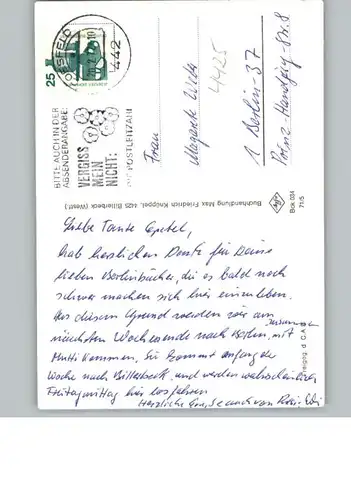 Liebe Tante Gretel,
hab herzlichen Dank für Deine
lieben Berlinbücher, die es bald noch
schwer machen sich hier einzuleben.
Aus diesem Grund werden wir am
nächsten Wochenende nach Berlin, mit
zusammen
Mutti kommen. Sie kommt anfang der
Woche nach Billerbeck und werden wahrscheinlich
Freitagmittag hier losfahren
Herzliche Grüsse auch von
Buchhandlung Max Friedrich Knüppel, 4425 Billerbeck (Westf.)
Bck 034
71/5
Freigeg. d.
Frau
Margarete
1 Berlin 37
Prinz-Handjery-Str. 8
4425
BITTE AUCH IN DER
ABSENDERANGABE:
VERGISS
MEIN
NICHT:
DIE POSTLEITZAHL
COESFELD
442
25